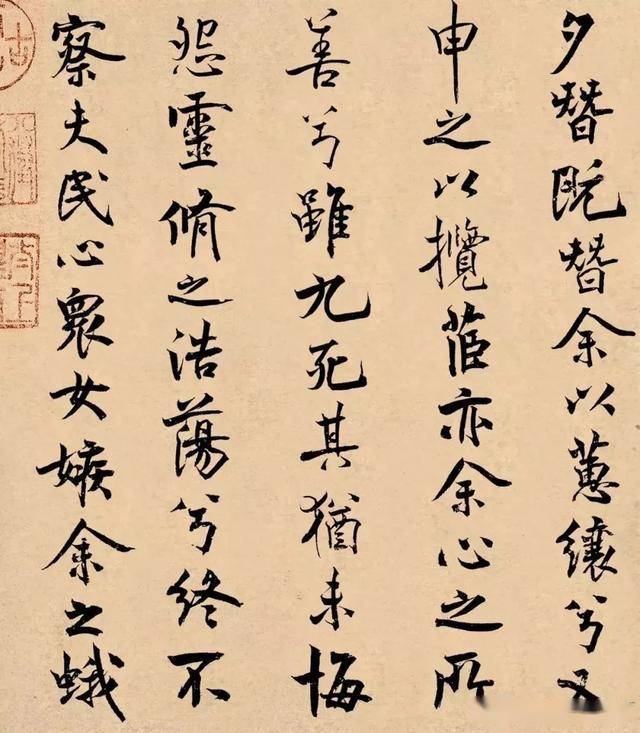 夕替既替余以蕙纕兮又
申之以攬茝亦余心之所
善兮雖九死其猶未悔
怨靈脩之浩蕩兮終不
察夫民心衆女嫉余之蛾